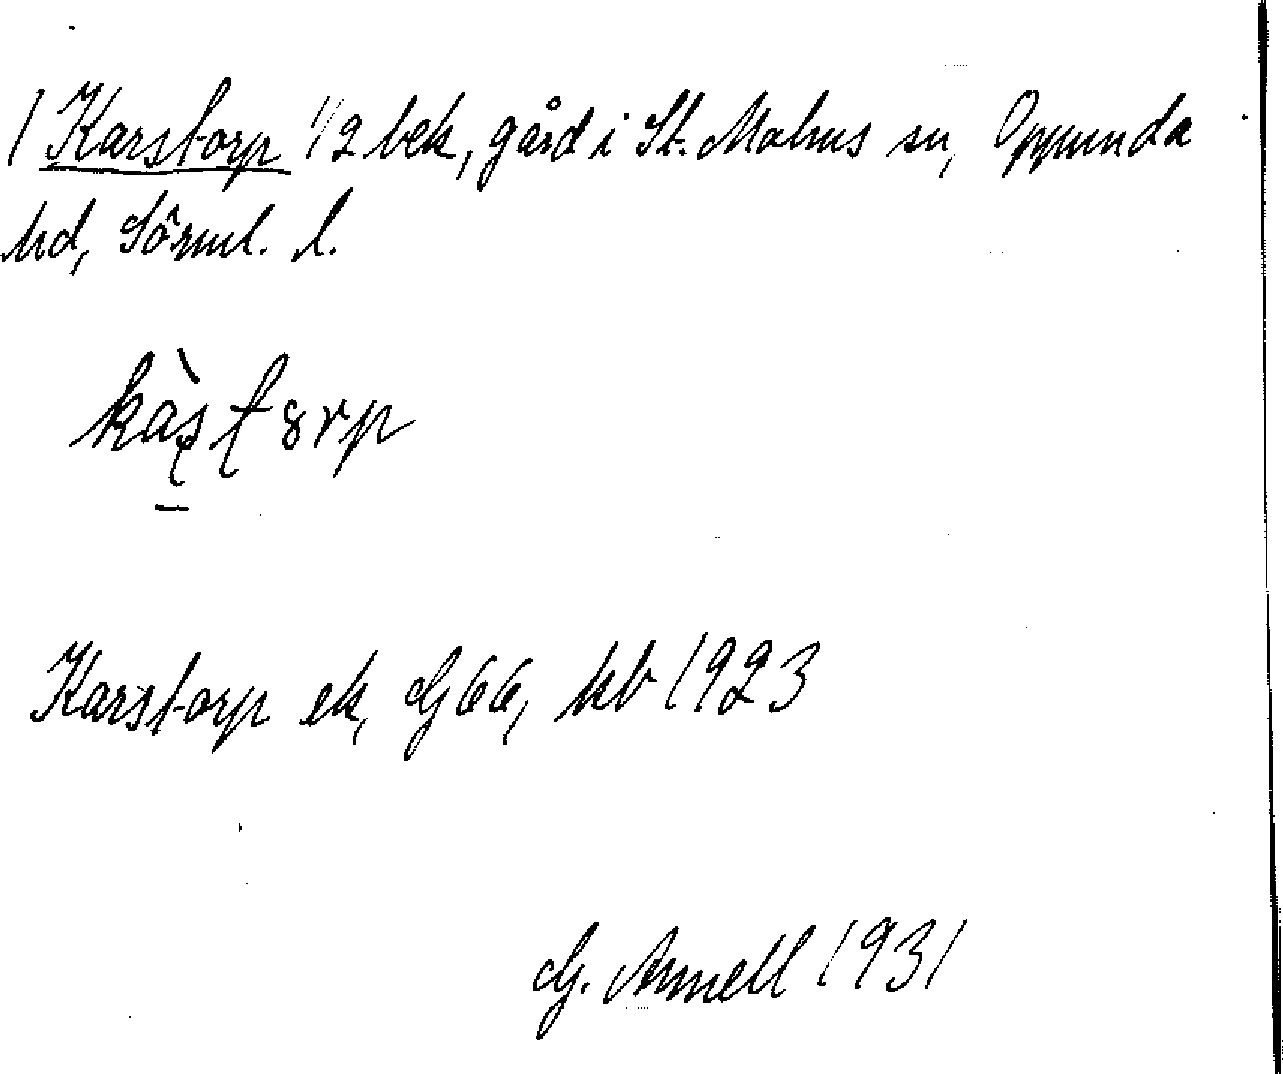 1 Karstorp 1/2 bek, gård i St. Malms sn, Oppunda
hd, Sörml. l.
Karstorp ek, Gj 66, kb 1923
G. Armell 1931